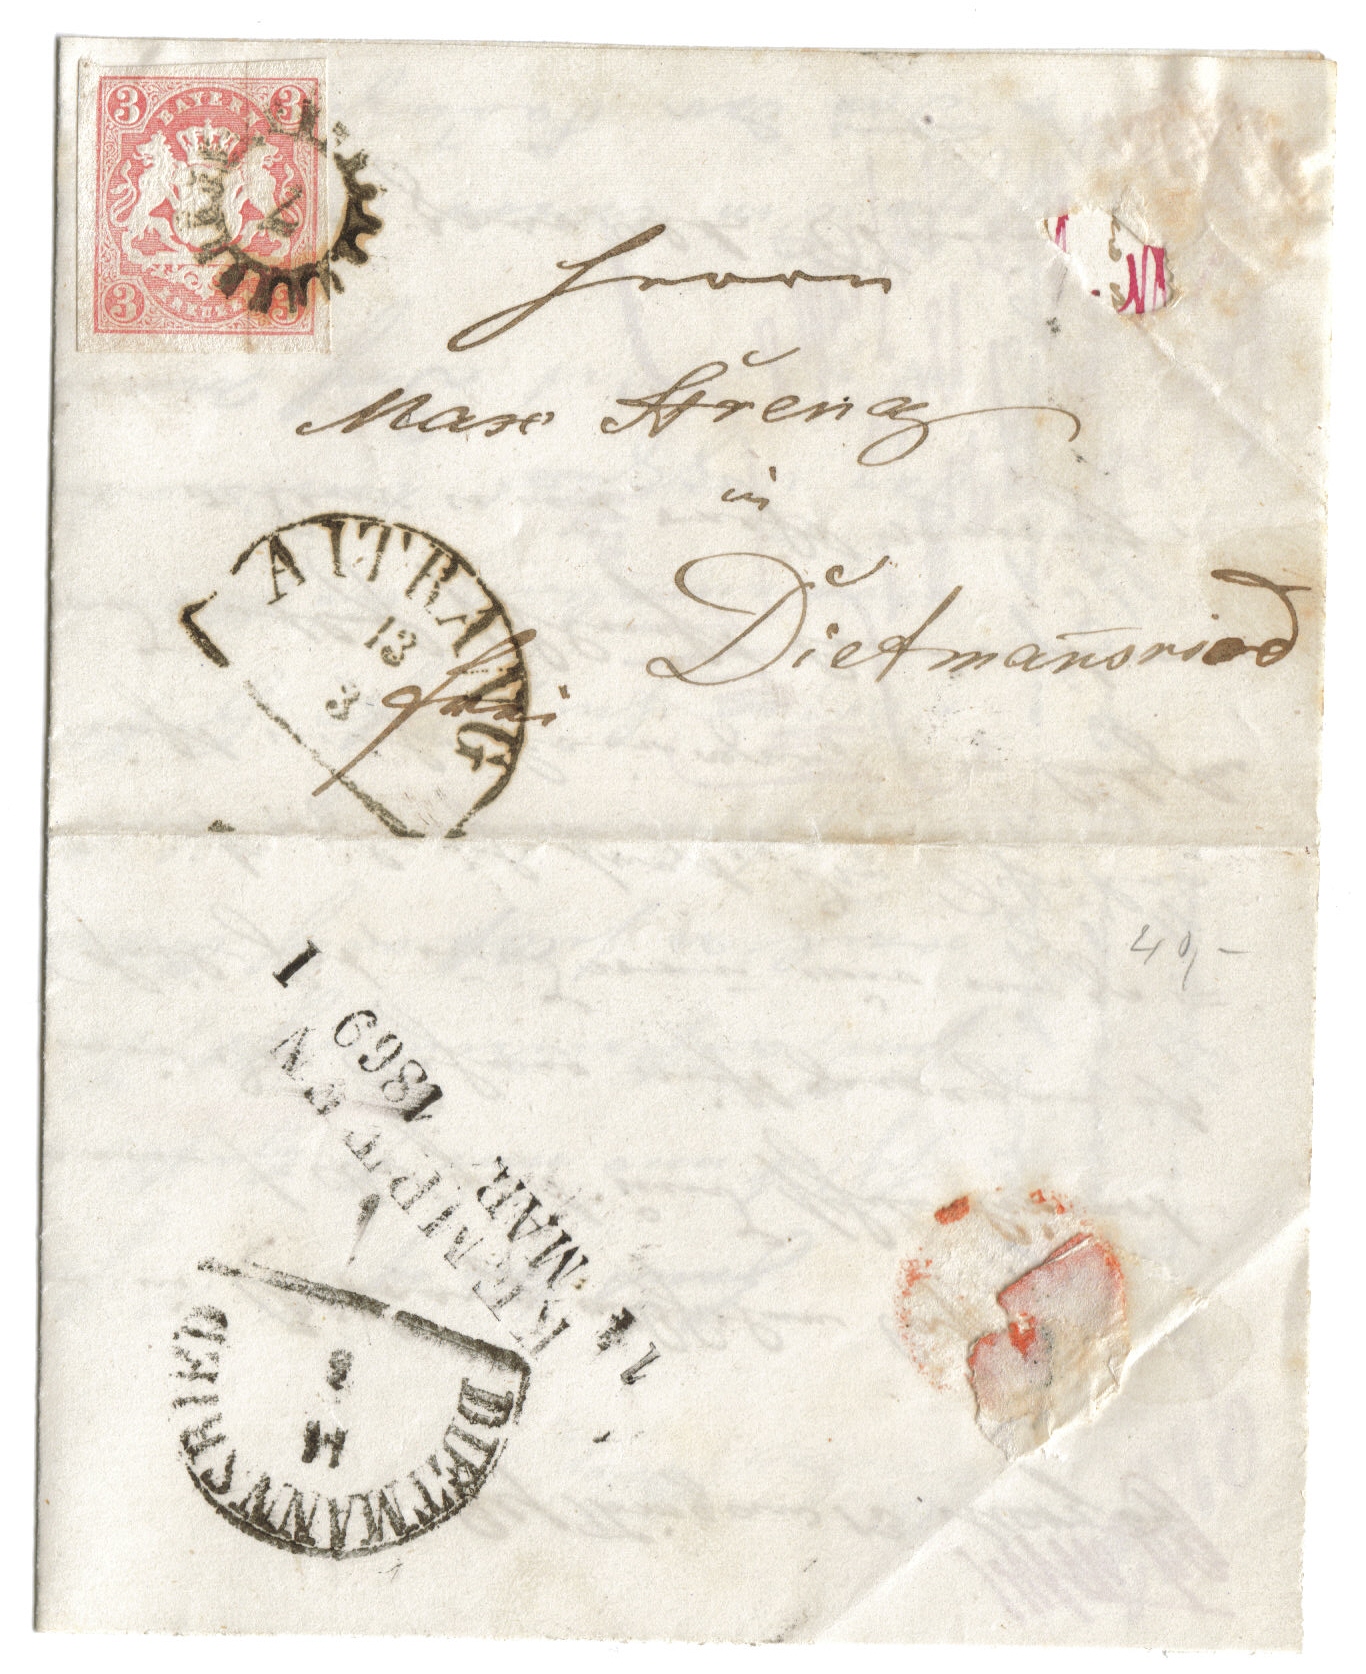 3 BAYERN 3
3 KREUZER 3
Herrn
Max Streng
in
Dietman̄sried
AITRANG
13
3
frei
49,-
I
KEMPTEN
14 MAR. 1869
DIETMANNSRIED